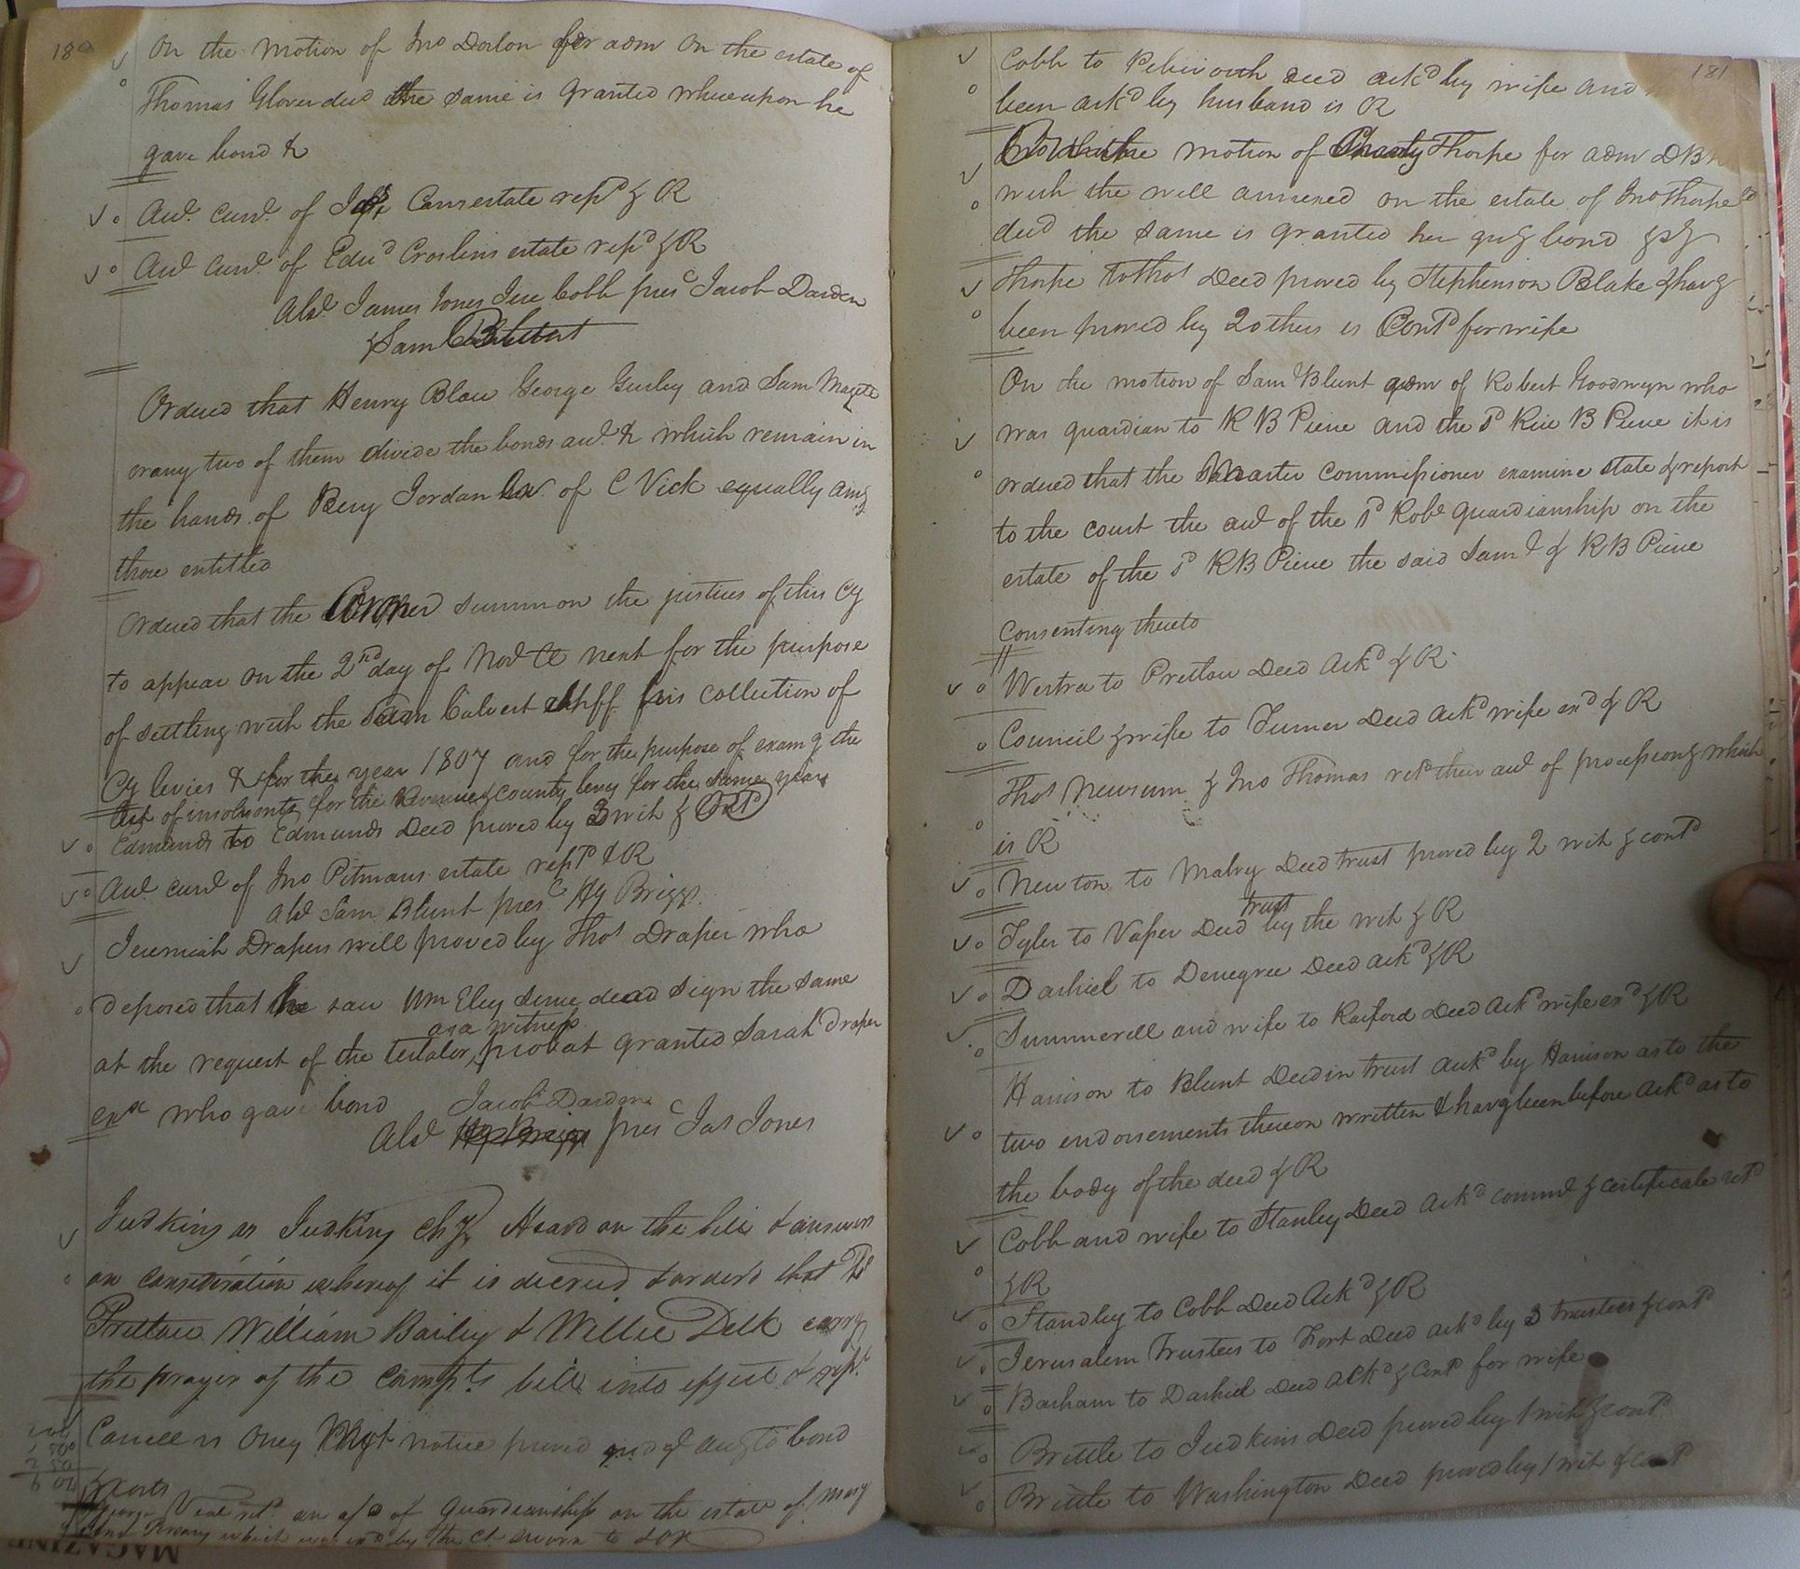 180
On the motion of Jno Darlon for adm on the estate of
Thomas Glover decd the same is granted whereupon he
gave bond &
Aud. curd. of Carrs estate repd & R
Aud. curd. of Edwd Croslins estate repd & R
Abst James Jones Jere Cobb prest Jacob Darden
& Sam Blunt
Ordered that Henry Blow George Gurley and Sam
or any two of them divide the bonds aud & which remain in
the hands of Benj Jordan of C Vick equally amg
those entitled
Ordered that the Coroner summon the justices of this Cy
to appear on the 2nd day of Novr Ct next for the purpose
of settling with the Calvert shff his collection of
Cy levies & for the year 1807 and for the purpose of examg the
list of insolvents for the Revenue & County levy for the same year
Edmunds to Edmunds Deed proved by 3 wit & ORd
Aud curd of Jno Pitmans estate repd & R
Abst Sam Blunt prest Hy Briggs.
Jeremiah Drapers will proved by Thos Draper who
deposed that he saw Wm Eley since dead sign the same
as a witness
at the request of the testator, probat granted Sarah Draper
exx who gave bond
Jacob Darden
Abst Hy Briggs prest Jas Jones
Judkins vs Judkins Chy Heard on the bill & answers
on consideration whereof it is decreed & orderd that
Pretlow William Bailey & Willie Delk carry
the prayer of the Complts bill into effect & rept.
Carrell vs Oney Mot notice proved bond
& costs
George retd an a/c of Guardianship on the estate of Mary
which was exd by the Ct sworn to & OR
MAGAZINE
181
Cobb to deed ackd by wife and
been ackd by husband is R
On the motion of Charity Thorpe for adm DBN
with the will annexed on the estate of Jno Thorpe
decd the same is granted her givg bond &
Thorpe to Thos Deed proved by Stephenson Blake & havg
been proved by 2 others is Contd for wife
On the motion of Sam Blunt adm of Robert Goodwyn who
was guardian to R B Pierce and the sd Rice B Pierce it is
ordered that the Master Commissioner examine state & report
to the court the aud of the sd Robt guardianship on the
estate of the sd RB Pierce the said Saml & RB Pierce
Consenting thereto
Westra to Pretlow Deed Ackd & R
Council & wife to Turner Deed Ackd wife exd & R
Thos Newsum & Jno Thomas retd their aud of processiong which
is R
Newton to Malvey Deed trust proved by 2 wit & contd
trust
Tyler to Vasser Deed by the wit & R
Dashiel to Denegree Deed ackd & R
Summerell and wife to Raiford Deed Ackd wife exd & R
Harrison to Blunt Deed in trust Ackd by Harrison as to the
two endorsements thereon written & havg been before Ackd as to
the body of the deed & R
Cobb and wife to Stanley Deed Ackd comml & certificate retd
& R
Standley to Cobb Deed Ackd & R
Jerusalem Trustees to Fort Deed ackd by 3 trustees & contd
Barham to Dashiel Deed ackd & Contd for wife
Brittle to Judkins Deed proved by 1 wit & contd
Brittle to Washington Deed proved by 1 wit & contd